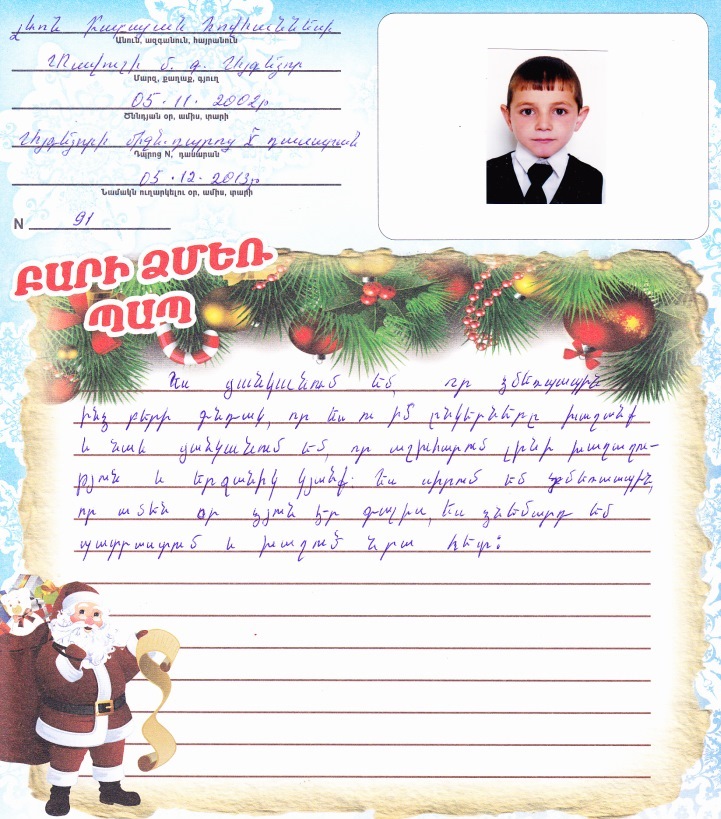 Լևոն Քարայան Հովհաննեսի
Անուն, ազգանուն, հայրանուն
Տավուշի մ. գ. Այգեձոր
Մարզ, քաղաք, գյուղ
05.11.2002թ
Ծննդյան օր, ամիս, տարի
Այգեձորի միջն. դպրոց դասարան
Դպրոց N, դասարան
05.12.2013թ
Նամակն ուղարկելու օր, ամիս, տարի
N 91
ԲԱՐԻ ՁՄԵՌ
ՊԱՊ
Ես ցանկանում եմ, որ ձմեռպապին
ինձ բերի գնդակ, որ ես ու իմ ընկերները խաղանք
և նաև ցանկանում եմ, որ աշխիարում լինի խաղաղու-
թյուն և երջանիկ կյանք: Ես սիրում եմ ձմեռպապին,
որ ամեն օր ձյուն էր գալիս, ես ձնեմարդ եմ
պատրաստում և խաղում նրա հետ: